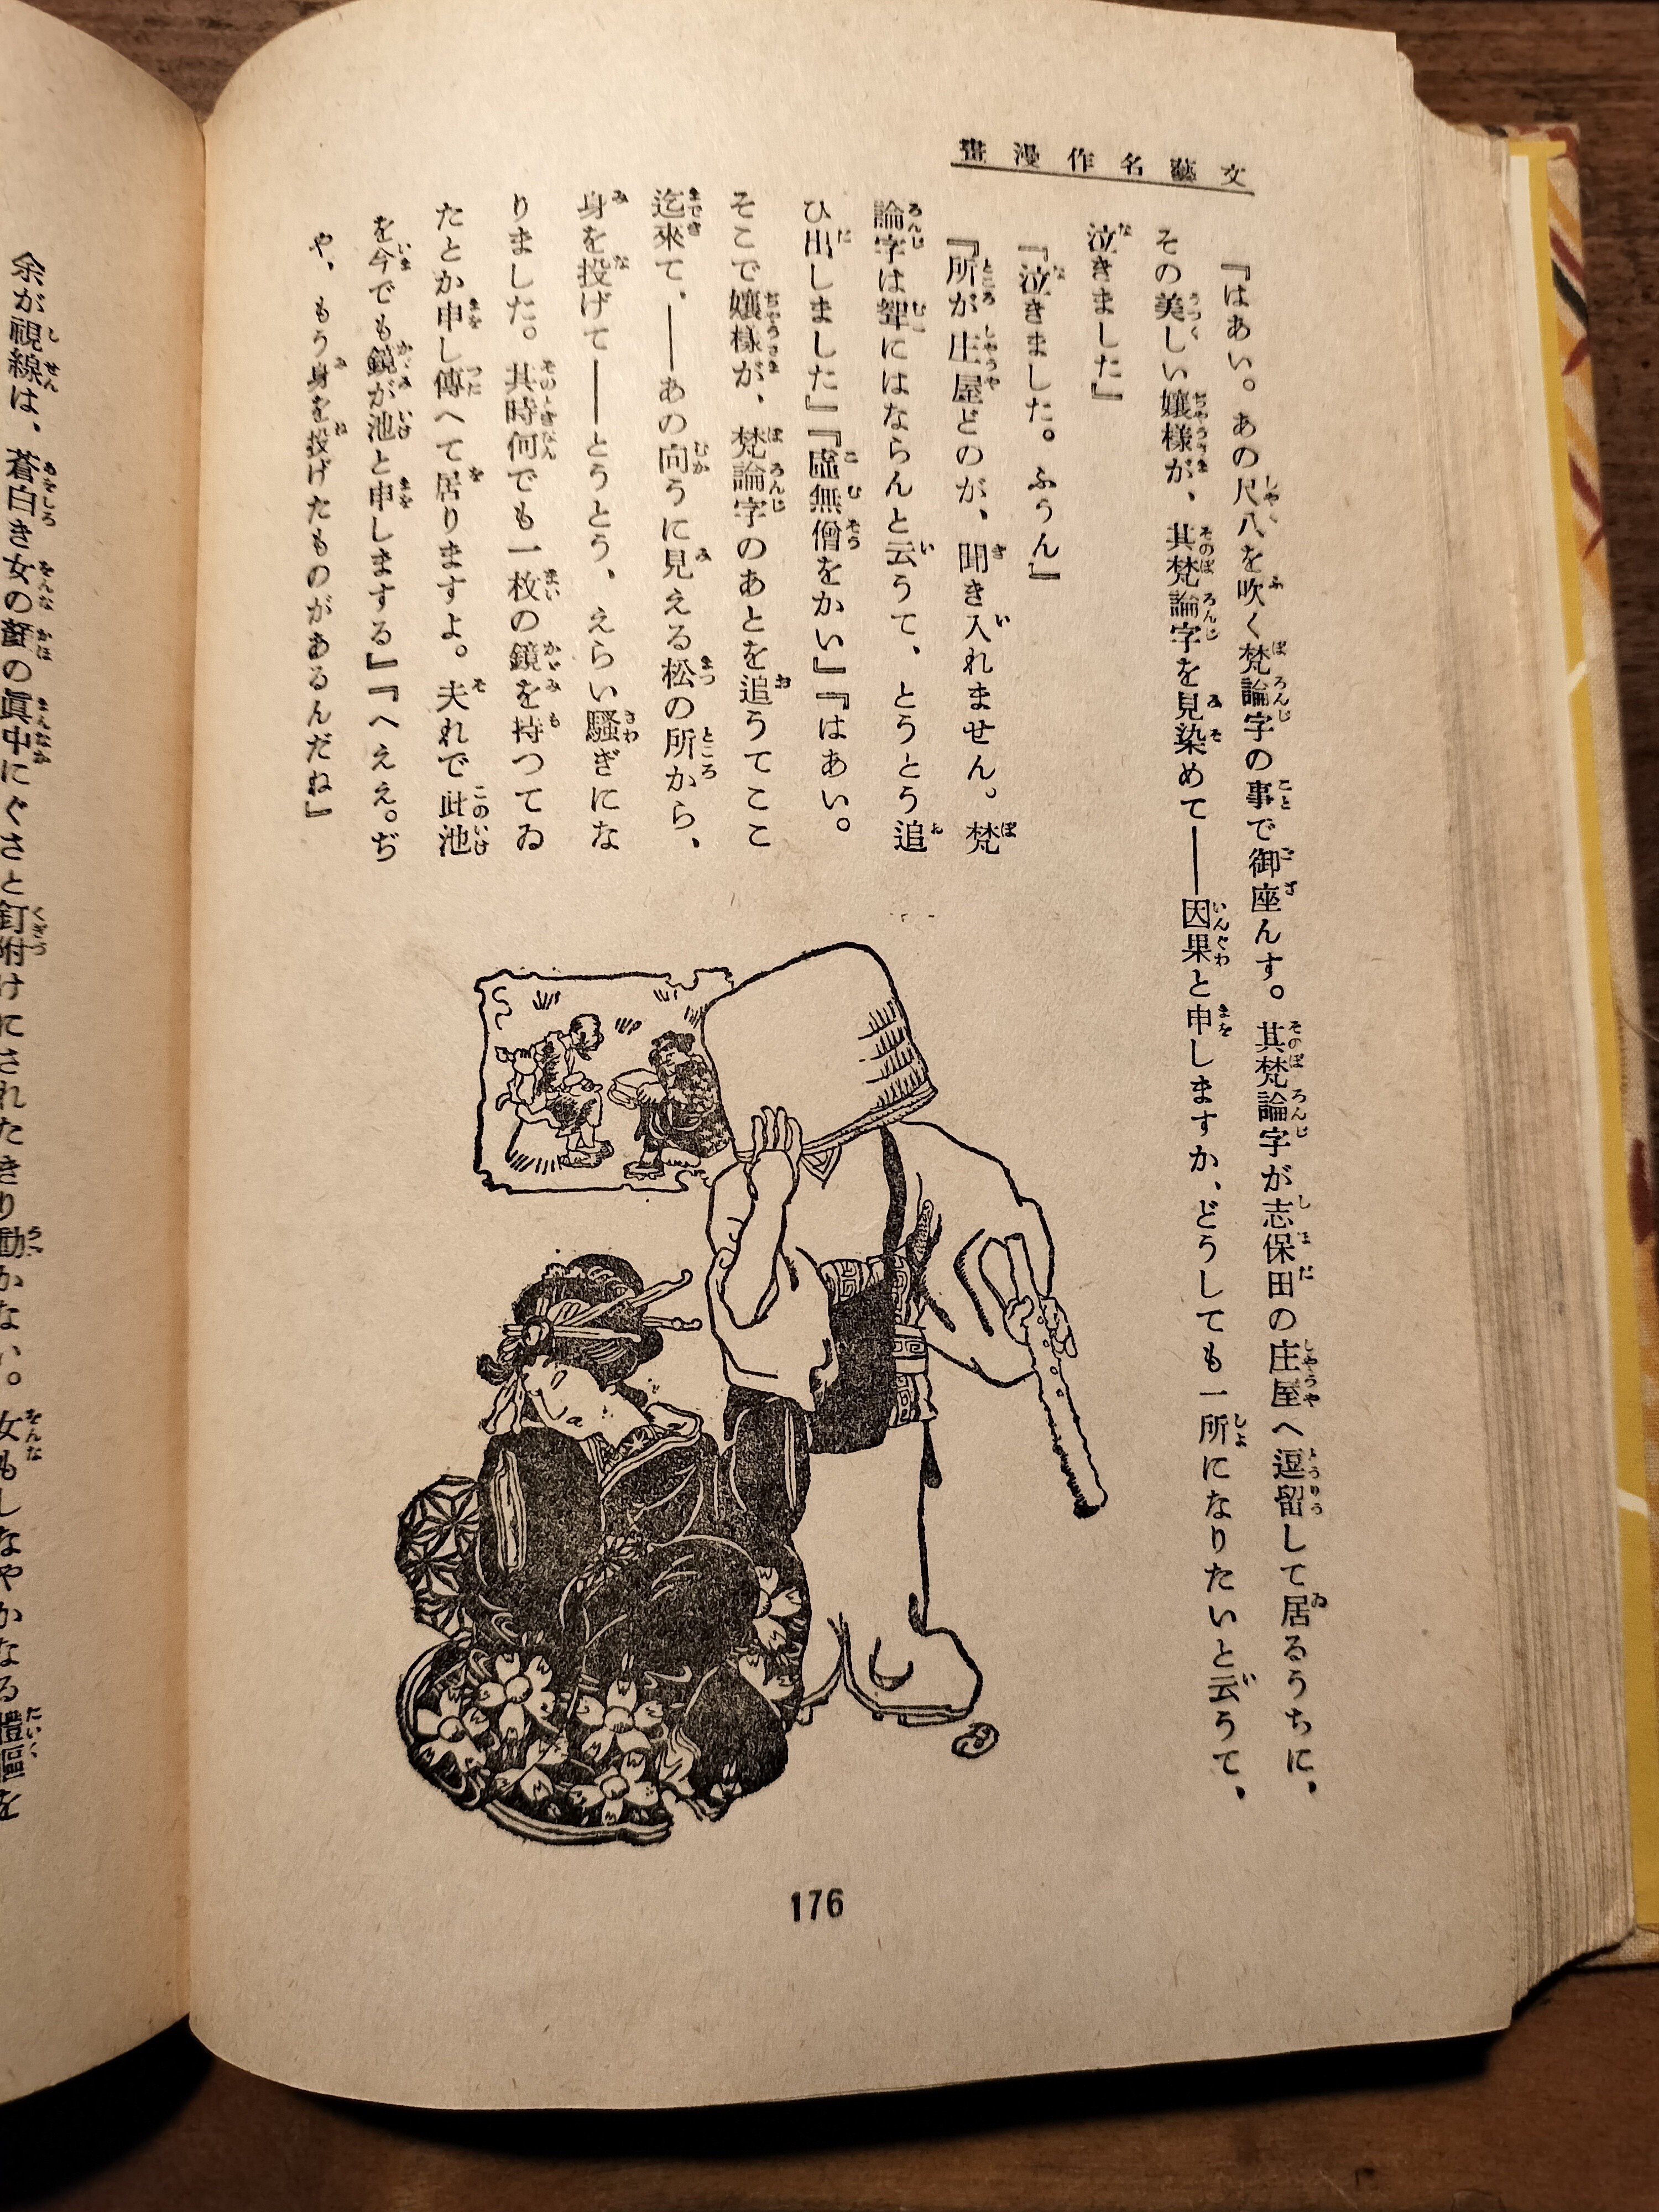 文藝名作漫畫
『はあい。あの尺八を吹く梵論字の事で御座んす。其梵論字が志保田の庄屋へ逗留して居るうちに、
その美しい孃樣が、其梵論字を見染めて――因果と申しますか、どうしても一所になりたいと云うて、
泣きました』
『泣きました。ふうん』
『所が庄屋どのが、聞き入れません。梵
論字は聟にはならんと云うて、とうとう追
ひ出しました』『虛無僧をかい』『はあい。
そこで孃樣が、梵論字のあとを追うてここ
迄來て、――あの向うに見える松の所から、
身を投げて――とうとう、えらい騷ぎにな
りました。其時何でも一枚の鏡を持つてゐ
たとか申し傳へて居りますよ。夫れで此池
を今でも鏡が池と申しまする』『へええ。ぢ
や、もう身を投げたものがあるんだね』
176
余が視線は、蒼白き女の顏の眞中にぐさと釘附けにされたきり動かない。女もしなやかなる體軀を